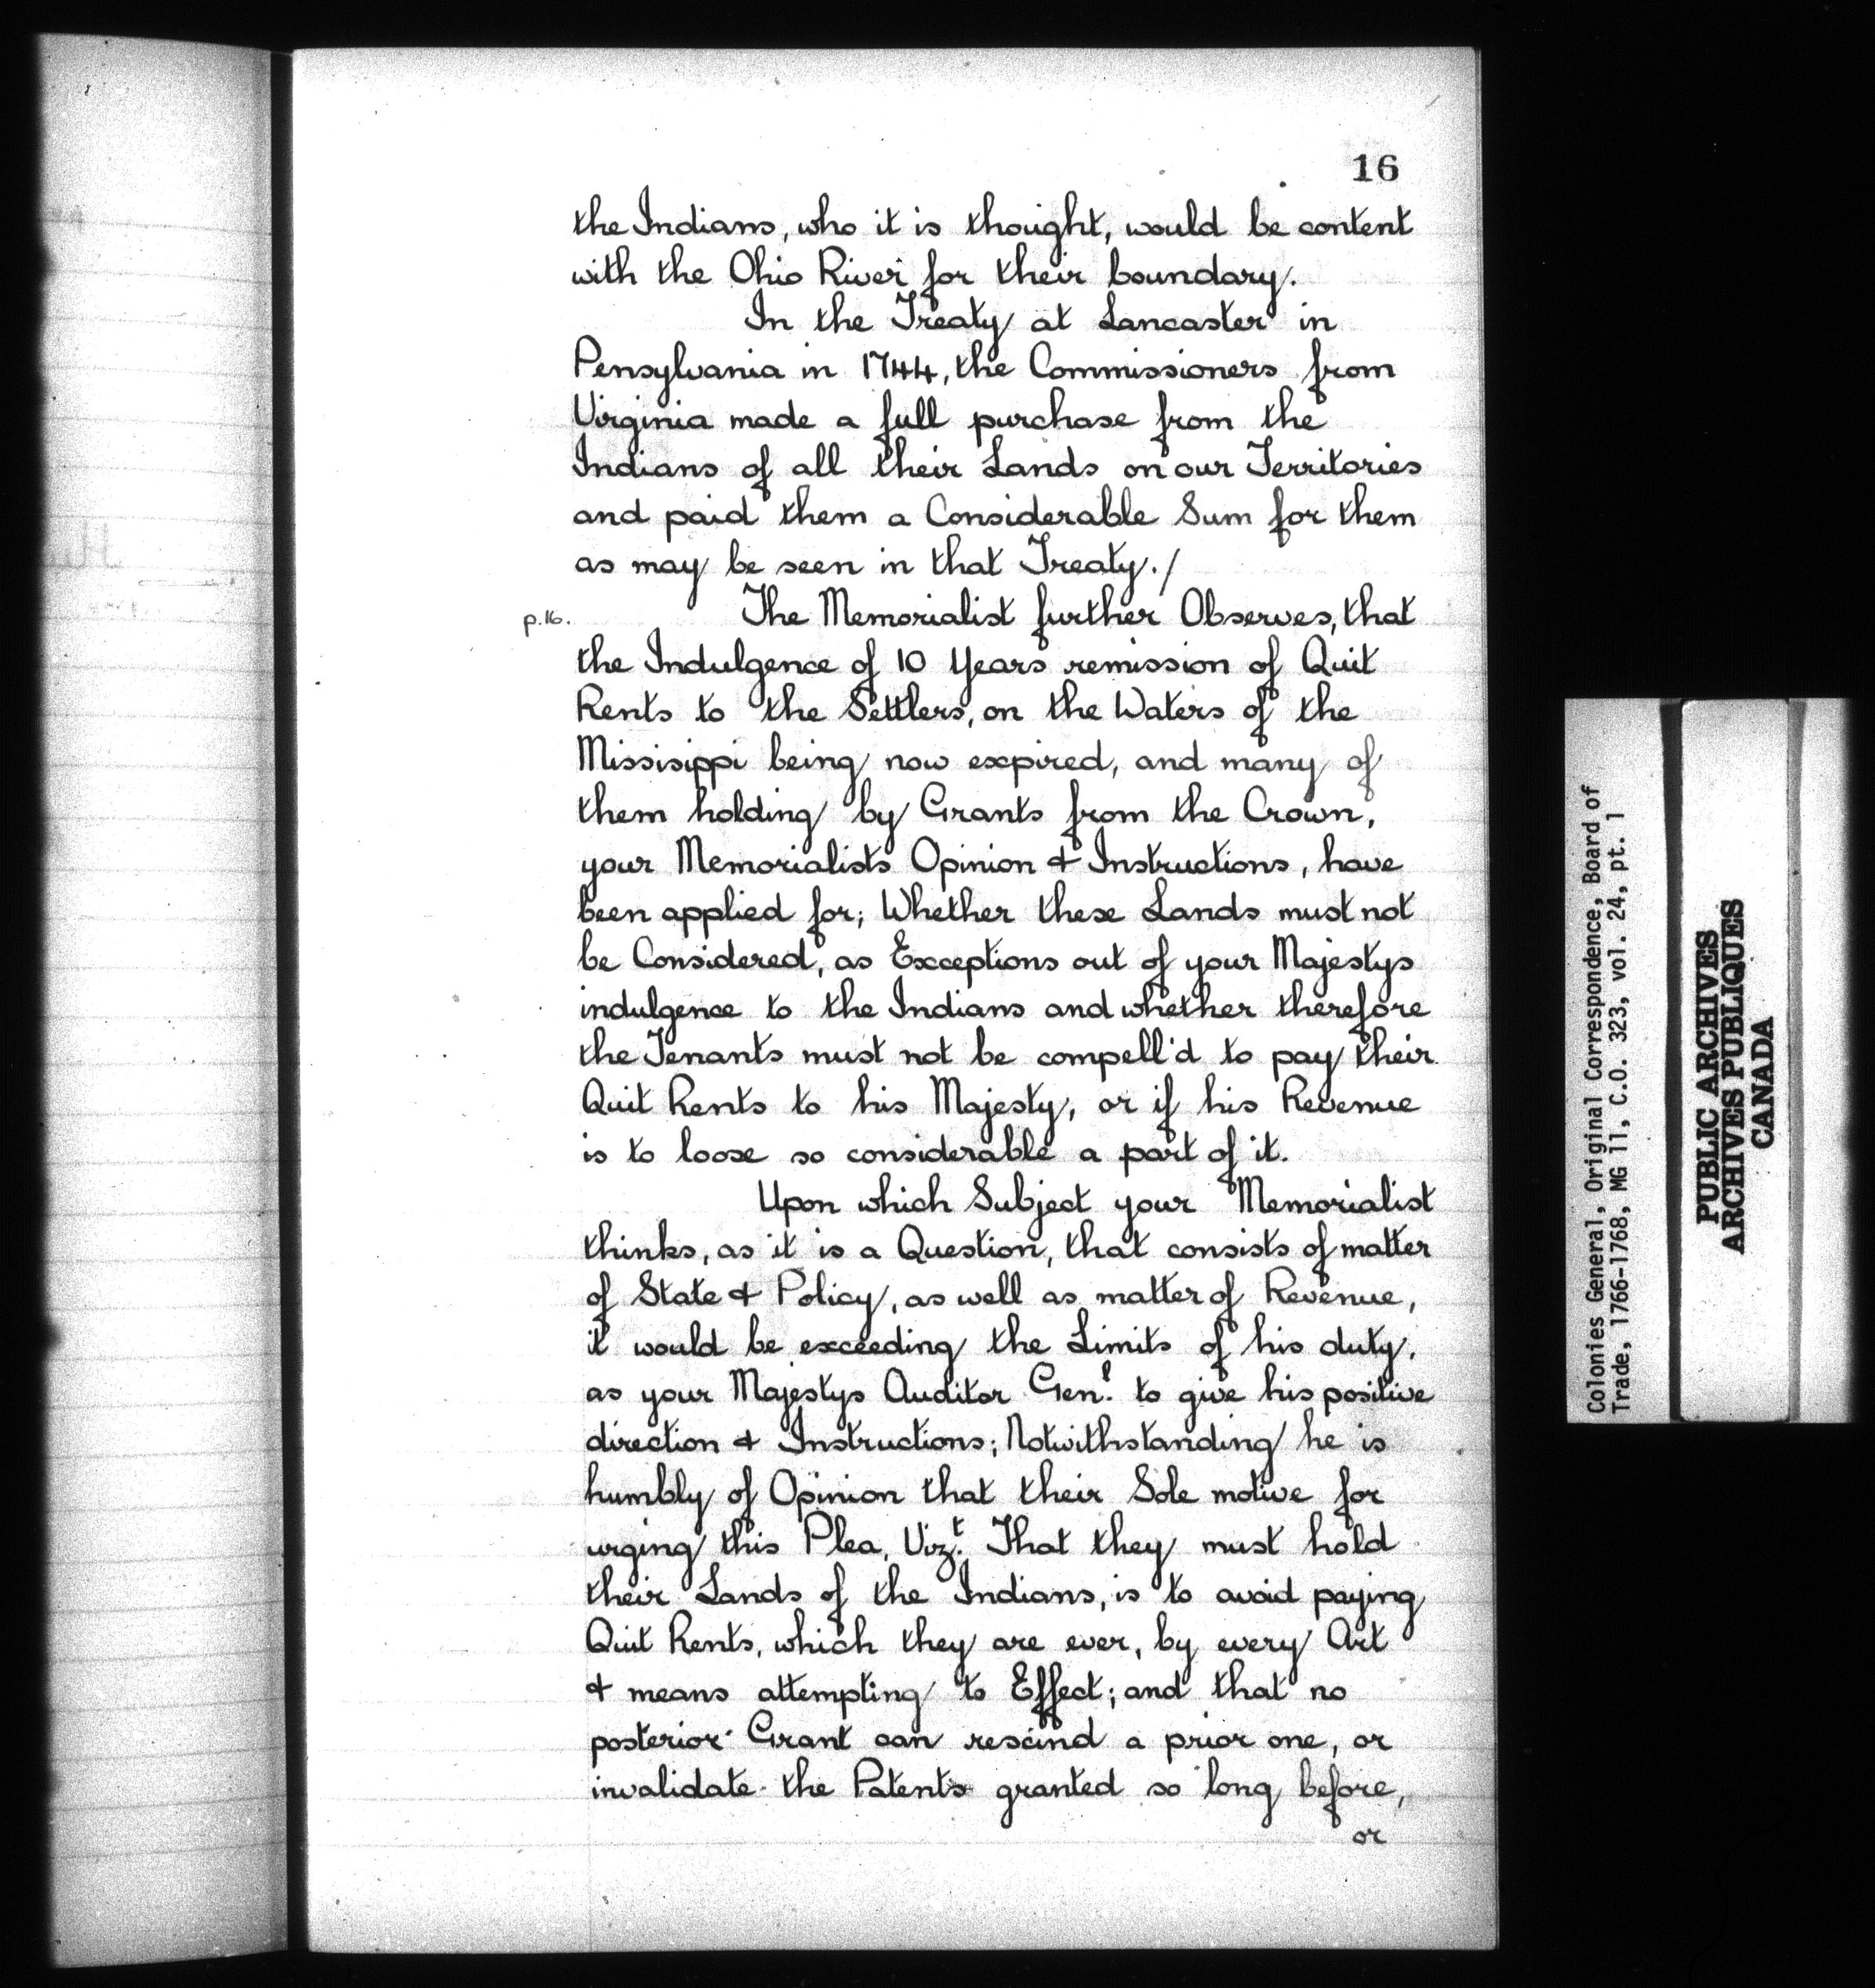 16
the Indians, who it is thought, would be content
with the Ohio River for their boundary.
In the Treaty at Lancaster in
Pensylvania in 1744, the Commissioners from
Virginia made a full purchase from the
Indians of all their Lands on our Territories
and paid them a Considerable Sum for them
as may be seen in that Treaty./
p.16. The Memorialist further Observes, that
the Indulgence of 10 Years remission of Quit
Rents to the Settlers, on the Waters of the
Missisippi being now expired, and many of
them holding by Grants from the Crown,
your Memorialists Opinion & Instructions, have
been applied for; Whether these Lands must not
be Considered, as Exceptions out of your Majestys
indulgence to the Indians and whether therefore
the Tenants must not be compell'd to pay their
Quit Rents to his Majesty, or if his Revenue
is to loose so considerable a part of it.
Upon which Subject your Memorialist
thinks, as it is a Question, that consists of matter
of State & Policy, as well as matter of Revenue,
it would be exceeding the Limits of his duty,
as your Majestys Auditor Genl. to give his positive
direction & Instructions; Notwithstanding he is
humbly of Opinion that their Sole motive for
urging this Plea, Vizt. That they must hold
their Lands of the Indians, is to avoid paying
Quit Rents, which they are ever, by every Art
& means attempting to Effect; and that no
posterior Grant can rescind a prior one, or
invalidate the Patents granted so long before,
or
Colonies General, Original Correspondence, Board of
Trade, 1766-1768, MG 11, C.O. 323, vol. 24, pt. 1
PUBLIC ARCHIVES
ARCHIVES PUBLIQUES
CANADA